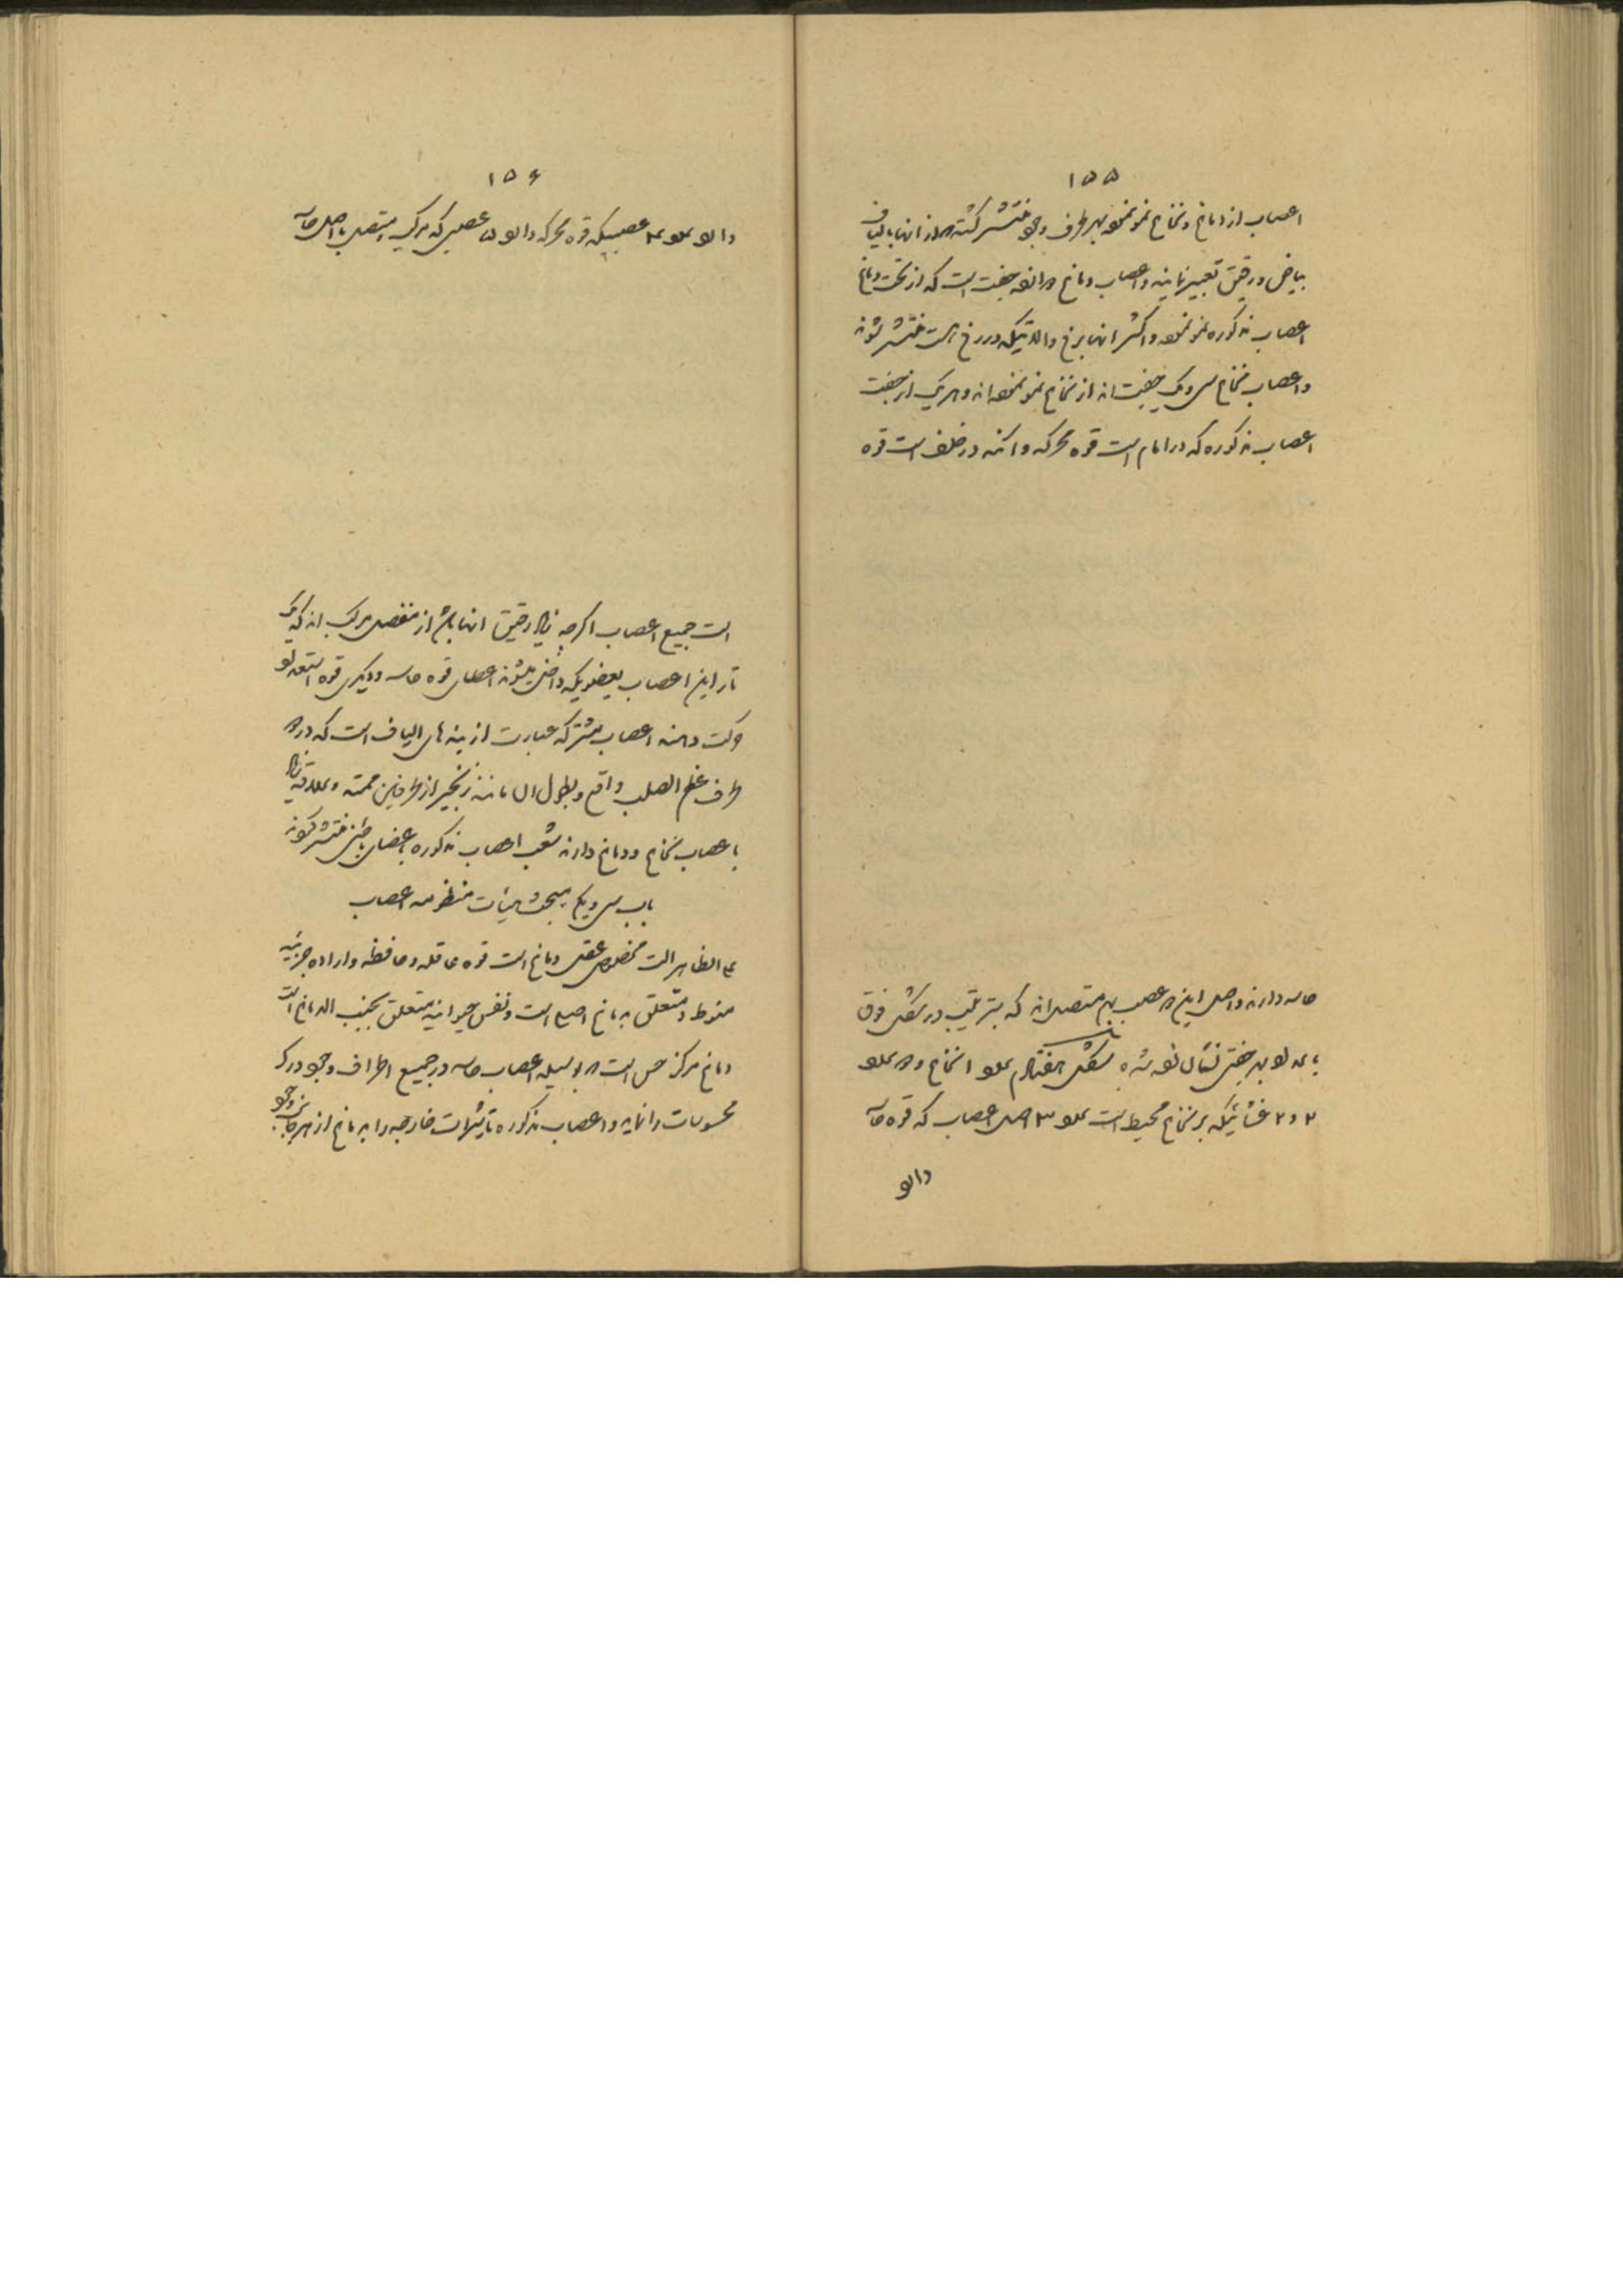 ۱۵۵
اعصاب از دماغ و نخاع نمو نموده بهر طرف وجود منتشر گشته از انها بالیاف
بیاض و رقیق تعبیر نمایند و اعصاب دماغ جفت است که از تحت دماغ
اعصاب مذکوره نمو نموده و اکثر انها برخ و الاتیکه در رخ است منتشر شوند
و اعصاب نخاع سی و یک جفت اند از نخاع نمو نموده اند و هر یک از جفت
اعصاب مذکوره که در امام است قوه محرکه و آنکه در خلف است قوه
حاسه دارند و اصل این عصب بهم متصل اند که بترتیب در شکل فوق
جفتی نشان شده شکل هفتادم نخاع
۲ و ۲ غشائیکه بر نخاع محیط است ۳ اصل اعصاب که قوه حاسه
دارد
۱۵۶
عصبیکه قوه محرکه دارد ۵ عصبی که مرکب و متصل با اصل حاسه
است جمیع اعصاب اگرچه رقیق انها باشد از مفصل مرکب اند که یک
تار این اعصاب بعضویکه داخل میشوند اعطای قوه حاسه و دیگری قوه استعداد
حرکت دهند اعصاب مشترکه عبارت از بند های الیاف است که در
طرف عظم الصلب واقع و بطول ان مانند زنجیر از طرفین ممتد و علاقه
باعصاب نخاع و دماغ دارند شعب اعصاب مذکوره باعضای باطنی منتشر گردند
باب سی و یکم مبحث هیئات منظومه اعصاب
علی الظاهر الت مخصوص عقل دماغ است قوه عاقله و حافظه و اراده جزئیه
منوط و متعلق بدماغ اصیل است و نفس حیوانیه متعلق بجنیب الدماغ است
دماغ مرکز حس است بوسیله اعصاب حاسه در جمیع اطراف وجود درک
محسوسات را نماید و اعصاب مذکوره تاثیرات خارجه را بدماغ از هر جانب وجود